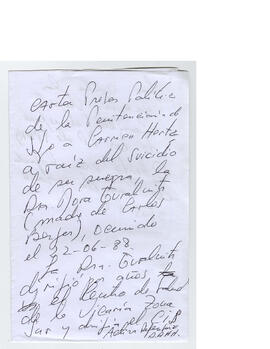 Carta Presos Políticos
de la Penitenciaría de
Stgo a Carmen Hertz
a raíz del suicidio
de su suegra, la
Dra Dora Guralnik
(madre de Carlos
Berger), ocurrido
el 22-06-88.
La Dra. Guralnik
dirigió por años
el
de la Zona
Sur y